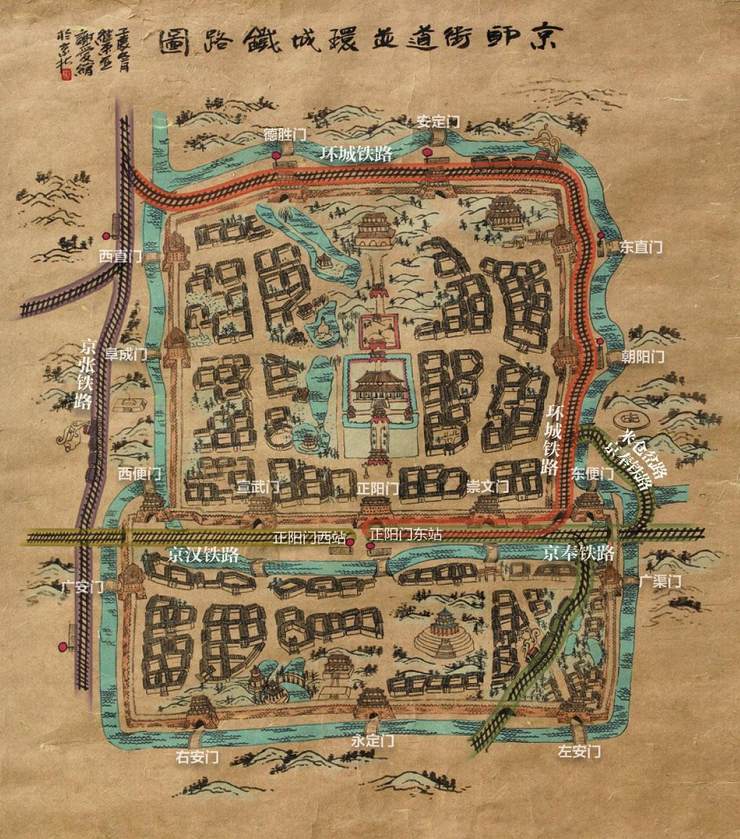 京師街道並環城鐵路圖
壬辰冬月
於京北
安定门
德胜门
环城铁路
东直门
西直门
京张铁路
阜成门
朝阳门
环城铁路
米仓岔路
京奉铁路
西便门
宣武门
正阳门
崇文门
东便门
正阳门西站
正阳门东站
京汉铁路
京奉铁路
广安门
广渠门
永定门
右安门
左安门